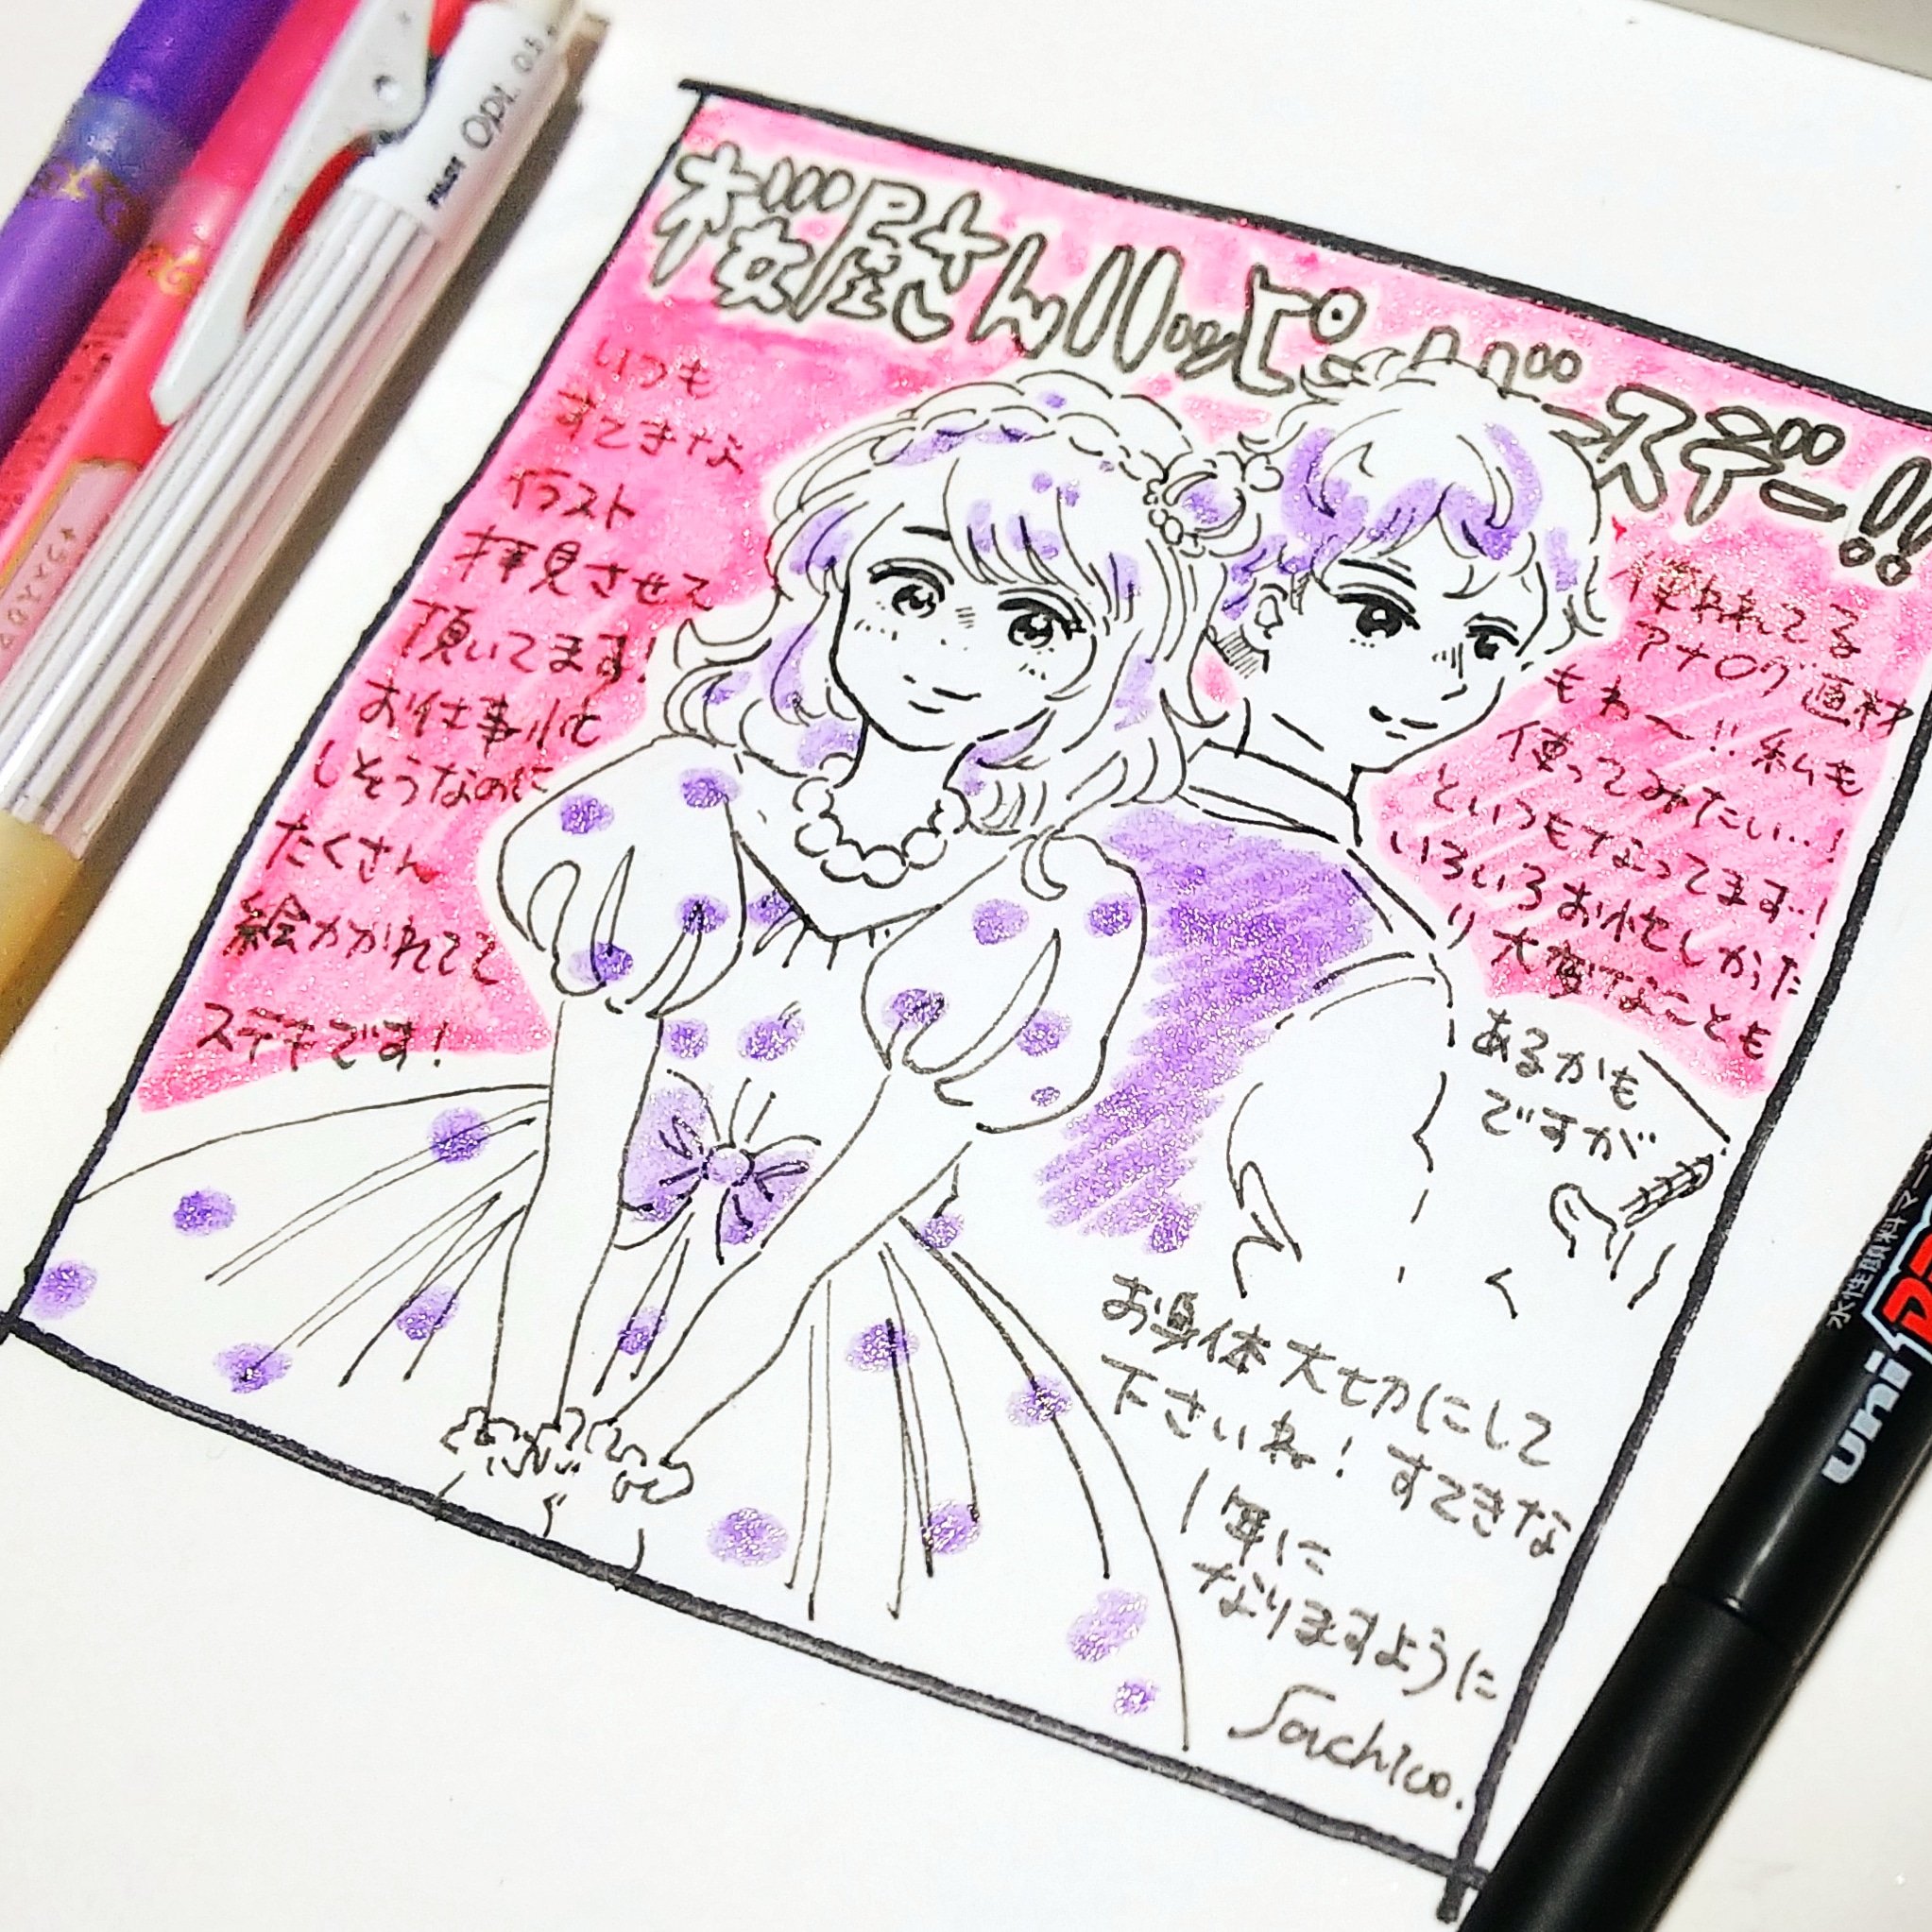 桜屋さんハッピーバースデー!!
いつも
すてきな
イラスト
拝見させて
頂いてます!
お仕事忙
しそうなのに
たくさん
絵かかれてて
ステキです!
使われてる
アナログ画材
もわ〜!!私も
使ってみたい…!
といつもなってます…!
いろいろお忙しかった
り大変なことも
あるかも
ですが
お身体大切にして
下さいね!すてきな
1年に
なりますように
Sachico.
PILOT Opt. 0.5
uni
水性顔料マー